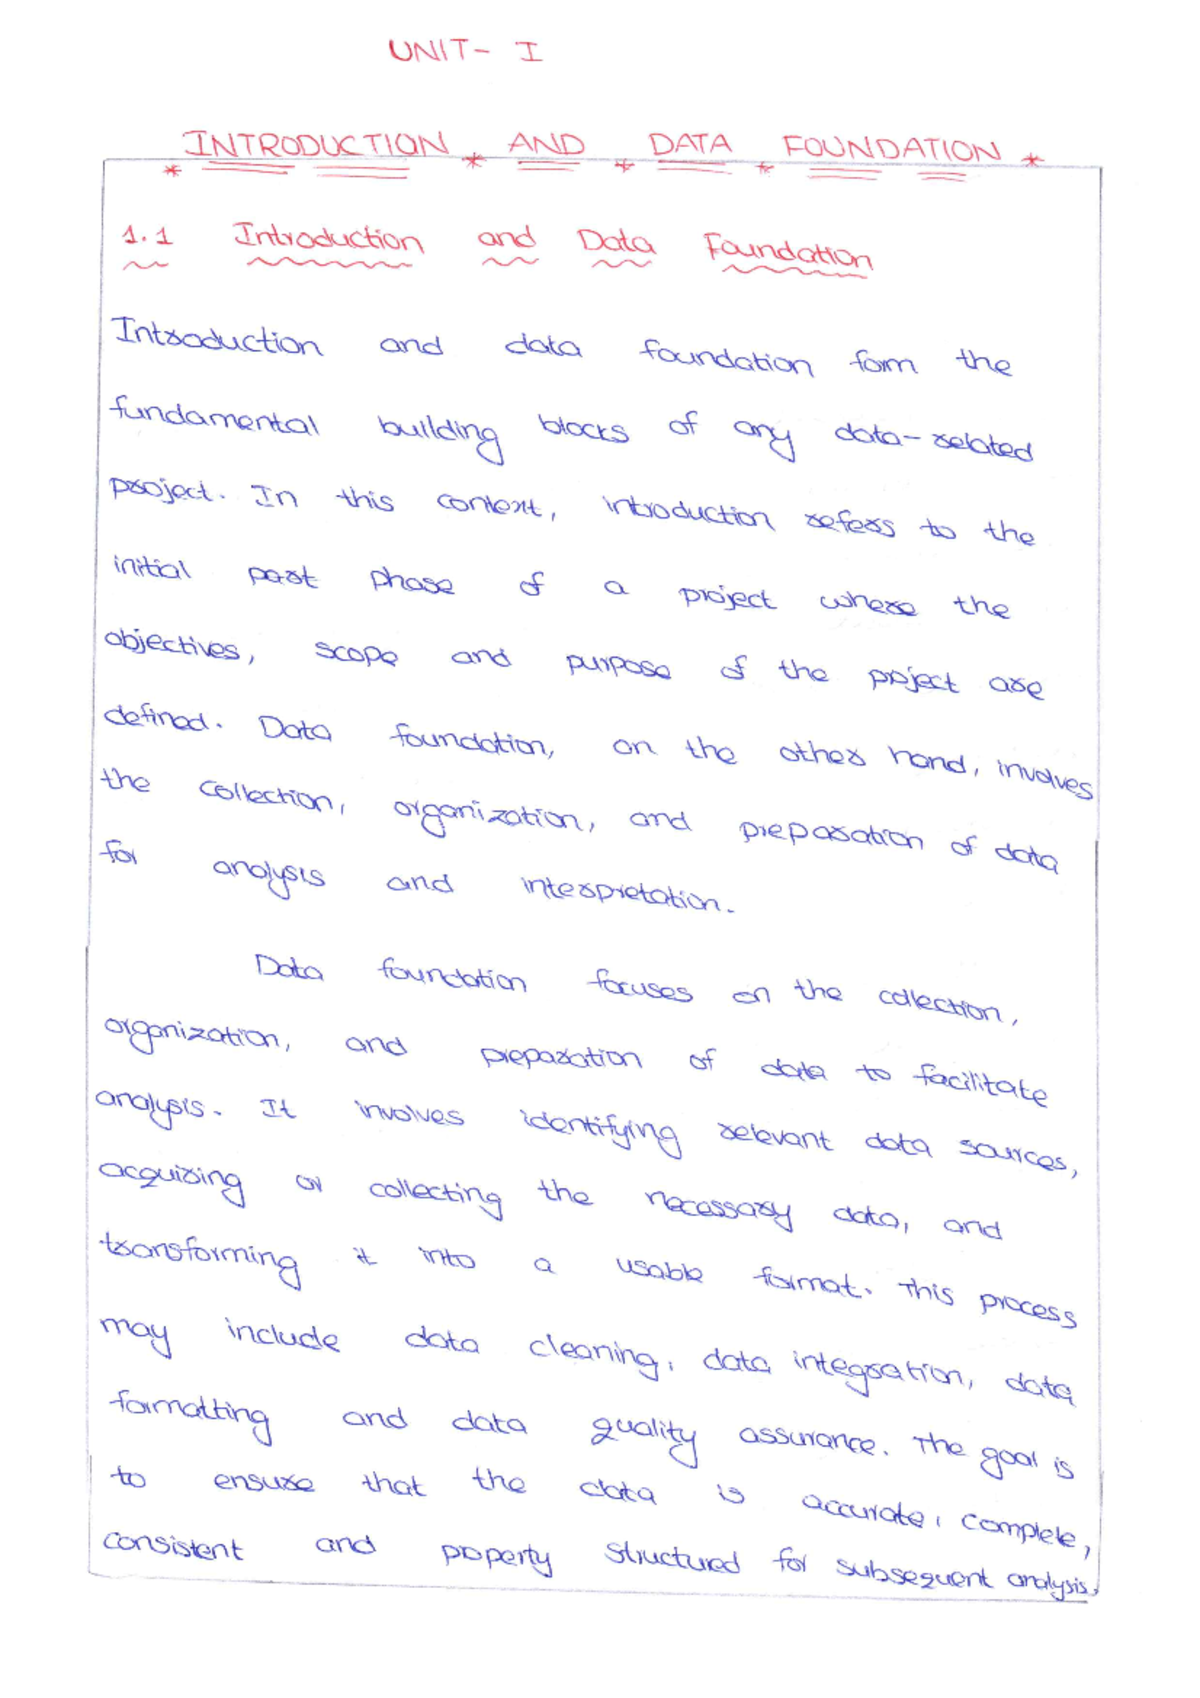 UNIT- I
INTRODUCTION AND DATA FOUNDATION
1.1 Introduction and Data Foundation
Introduction and data foundation form the
fundamental building blocks of any data-related
project. In this context, introduction refers to the
initial part phase of a project where the
objectives, scope and purpose of the project are
defined. Data foundation, on the other hand, involves
the collection, organization, and preparation of data
for analysis and interpretation.
Data foundation focuses on the collection,
organization, and preparation of data to facilitate
analysis. It involves identifying relevant data sources,
acquiring or collecting the necessary data, and
transforming it into a usable format. This process
may include data cleaning, data integration, data
formatting and data quality assurance. The goal is
to ensure that the data is accurate, complete,
consistent and property structured for subsequent analysis.